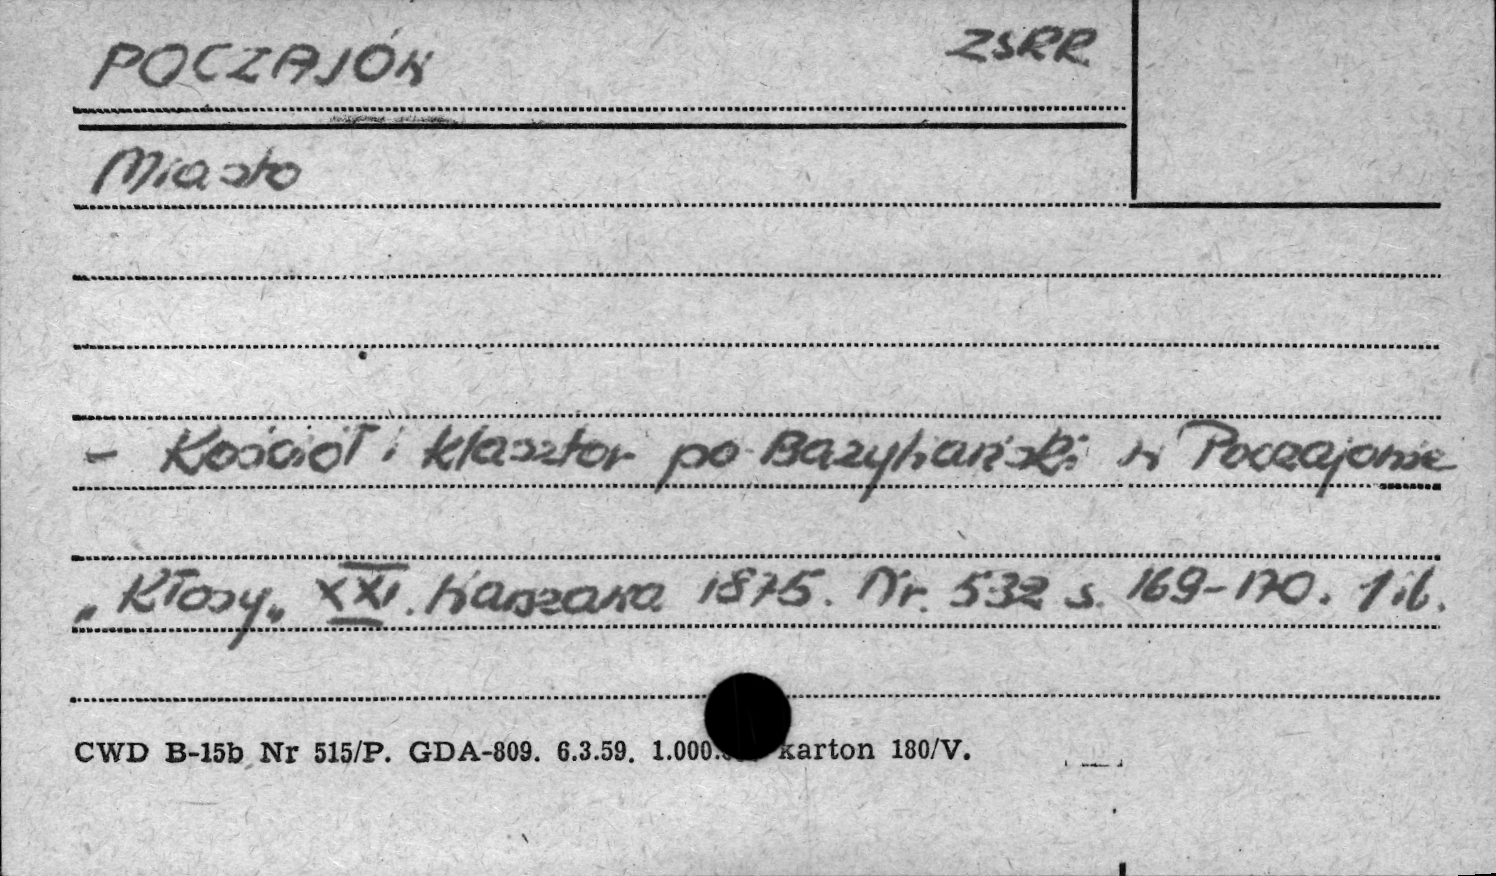 POCZAJÓW ZSRR
Miasto
- Kościół i klasztor po Bazyliański w Poczajowie
„Kłosy„ XXI. Warszawa 1875. Nr. 532 s. 169-170. 1 il.
CWD B-15b Nr 515/P. GDA-809. 6.3.59. 1.000. karton 180/V.